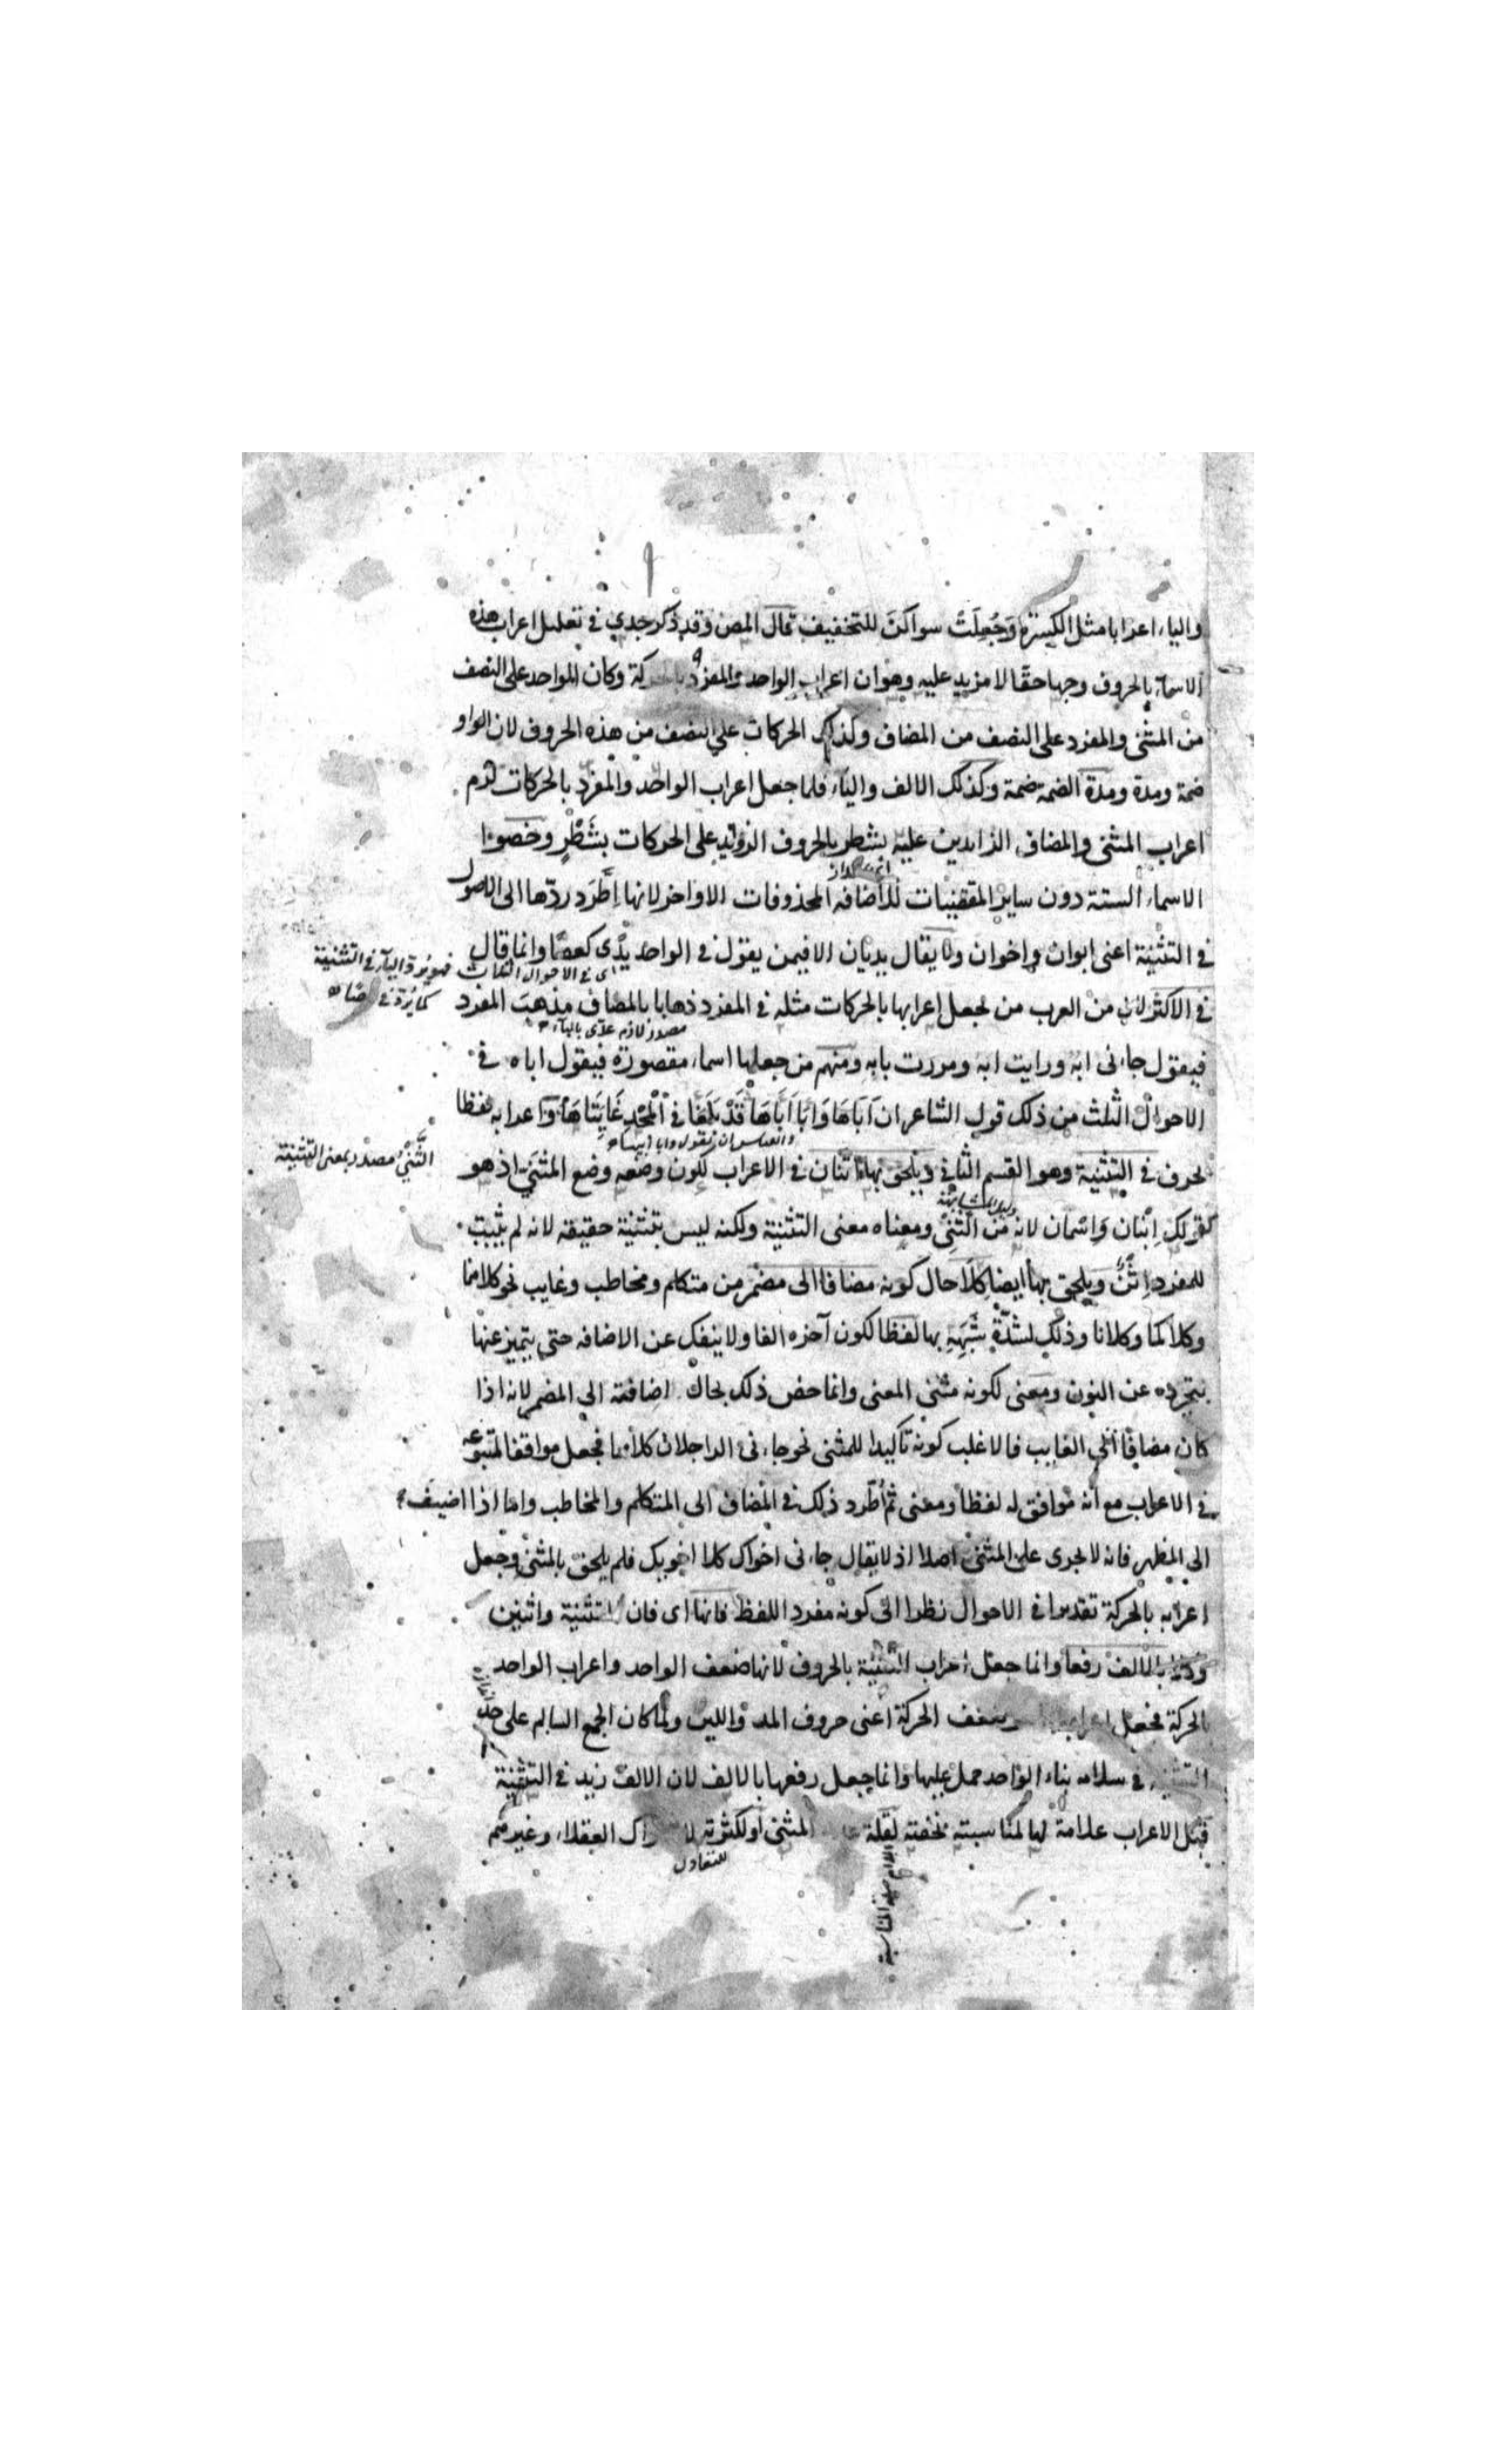 والياء اعرابا مثل الكسرة وَجُعِلَتْ سواكن للتخفيف قال المصن وقد ذكر جدي في تعليل اعراب هذه
الاسماء بالحروف وجها حقا لا مزيد عليه وهو ان اعراب الواحد والمفرد بالحركة وكان الواحد على النصف
من المثنى والمفرد على النصف من المضاف وكذلك الحركات على النصف من هذه الحروف لان الواو
ضمة ومدة ومدة الضمة ضمة وكذلك الالف والياء فلما جعل اعراب الواحد والمفرد بالحركات لزم
اعراب المثنى والمضاف الزايدين عليه بشطر بالحروف الزوايد على الحركات بشَطْرٍ وخصوا
الاسماء الستة دون ساير المقتضيات للاضافه المحذوفات الاواخر لانها اطَّرَد ردّها الى الاصول
في التثنية اعنى ابوان واخوان ولا يقال يديان الا فيمن يقول في الواحد يدًى كعصًا وانما قال
اى في الاحوال الثلاث
فهو يرد الياء في التثنية
في الاكثر لان من العرب من يجعل اعرابها بالحركات مثله في المفرد ذهابا بالمضاف مذهب المفرد
مصدر لازم عدّى بالباء
فيقول جاءنى ابه ورايت ابه ومررت بابه ومنهم من جعلها اسماء مقصورة فيقول اباه في
الاحوال الثلث من ذلك قول الشاعر ان اَبَاهَا وَاَبَا اَبَاهَا قَدْ بَلَغَا في الْمَجْدِ غَايَتَاهَا واعرابه لفظا
والقياس ان يقول وابا ابيها
بحرف في التثنية وهو القسم الثانى ويلحق بها اثنان في الاعراب لكون وضعه وضع المثنى اذ هو
الثَّنْيُ مصدر بمعنى التثنية
كقولك اِبْنان وَاِسْمان لانه من الثَّنْي ومعناه معنى التثنية ولكنه ليس بتثنية حقيقه لانه لم يثبت
للمفرد اِثْنٌ ويلحق بها ايضا كِلَا حال كونه مضافا الى مضمر من متكلم ومخاطب وغايب نحو كلاهما
وكلاكما وكلانا وذلك لشدّة شَبَهِهِ بها لفظا لكون آخره الفا ولا ينفك عن الاضافه حتى يتميز عنها
بتجرده عن النون ومعنى لكونه مثنى المعنى وانما خص ذلك بحال اضافته الى المضمر لانه اذا
كان مضافا الى الغايب فالاغلب كونه تأكيدا للمثنى نحو جاءنى الراجلان كلاهما فجعل موافقا لمتبوعه
في الاعراب مع انه موافق له لفظا ومعنى ثم اُطّرد ذلك في المضاف الى المتكلم والمخاطب واما اذا اضيف
الى المظهر فانه لا يجرى على المثنى اصلا اذ لا يقال جاءنى اخواك كلا اخويك فلم يلحق بالمثنى وجعل
اعرابه بالحركة تقديرا في الاحوال نظرا الى كونه مفرد اللفظ فانها اى فان التثنية واثنين
بالالف رفعا وانما جعل اعراب التثنية بالحروف لانها ضعف الواحد واعراب الواحد
بالحركة فجعل ضعف الحركة اعنى حروف المد واللين ولما كان الجمع السالم على حد
التثنية في سلامه بناء الواحد حمل عليها وانما جعل رفعها بالالف لان الالف زيد في التثنية
قبل الاعراب علامة لها لمناسبته بخفته لقلة المثنى او لكثرته العقلاء وغيرهم
للتعادل
اللام صلة المناسبة